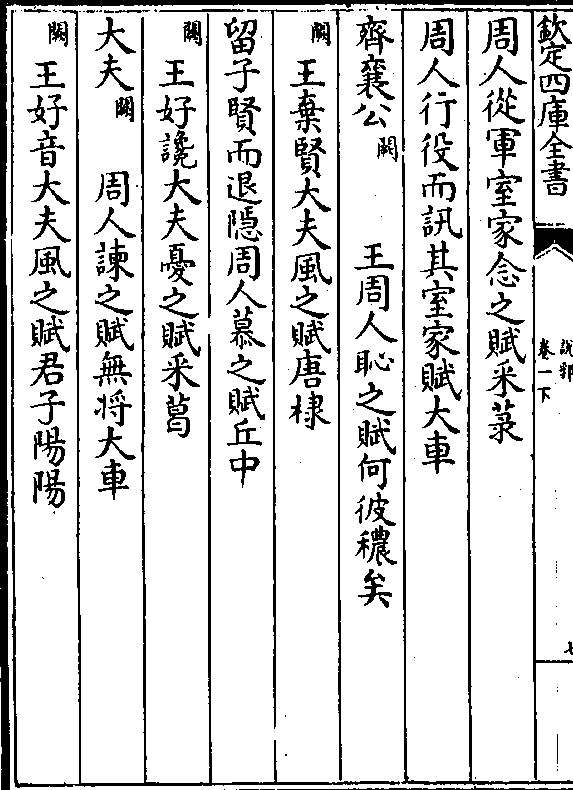 欽定四庫全書
說郛
卷一下
七
周人從軍室家念之賦采菉
周人行役而訊其室家賦大車
齊襄公闕 王周人恥之賦何彼穠矣
闕 王棄賢大夫風之賦唐棣
留子賢而退隱周人慕之賦丘中
闕 王好讒大夫憂之賦采葛
大夫闕 周人諫之賦無將大車
闕 王好音大夫風之賦君子陽陽